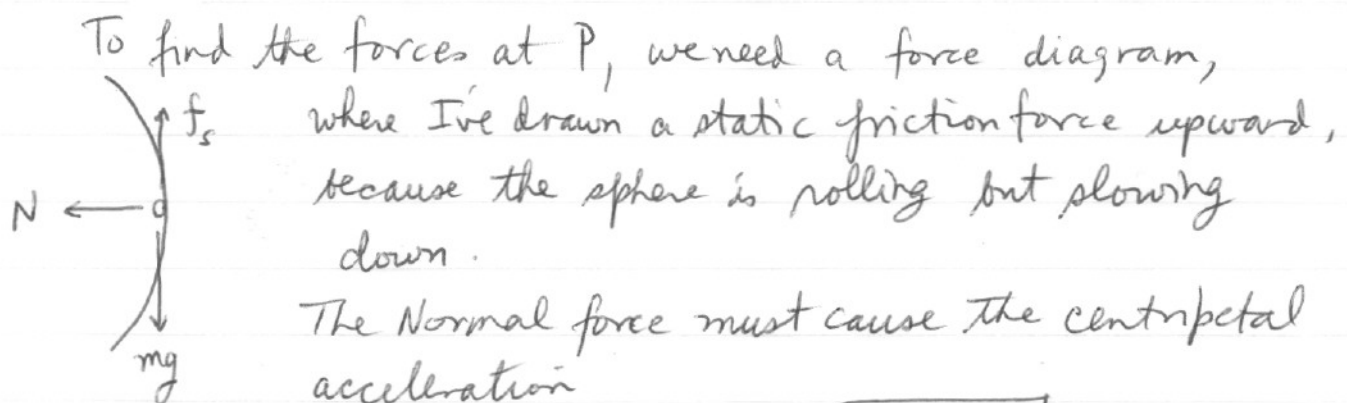 To find the forces at P, we need a force diagram,
fs where I've drawn a static friction force upward,
N because the sphere is rolling but slowing
down.
The Normal force must cause the centripetal
mg acceleration